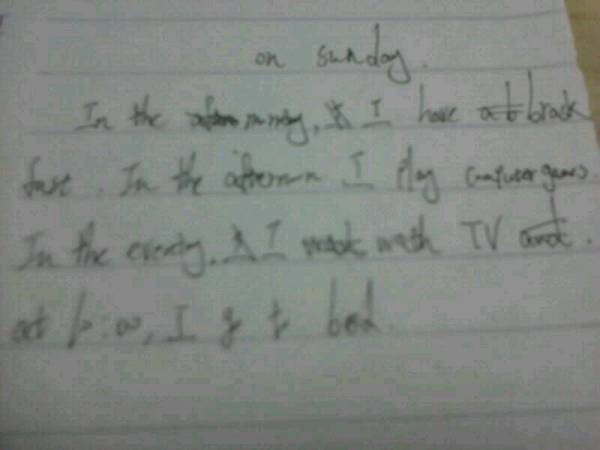 on sunday.
In the morning, I have break
fast. In the afternoon I play computer games.
In the evening, I watch TV.
at 10:00, I go to bed.